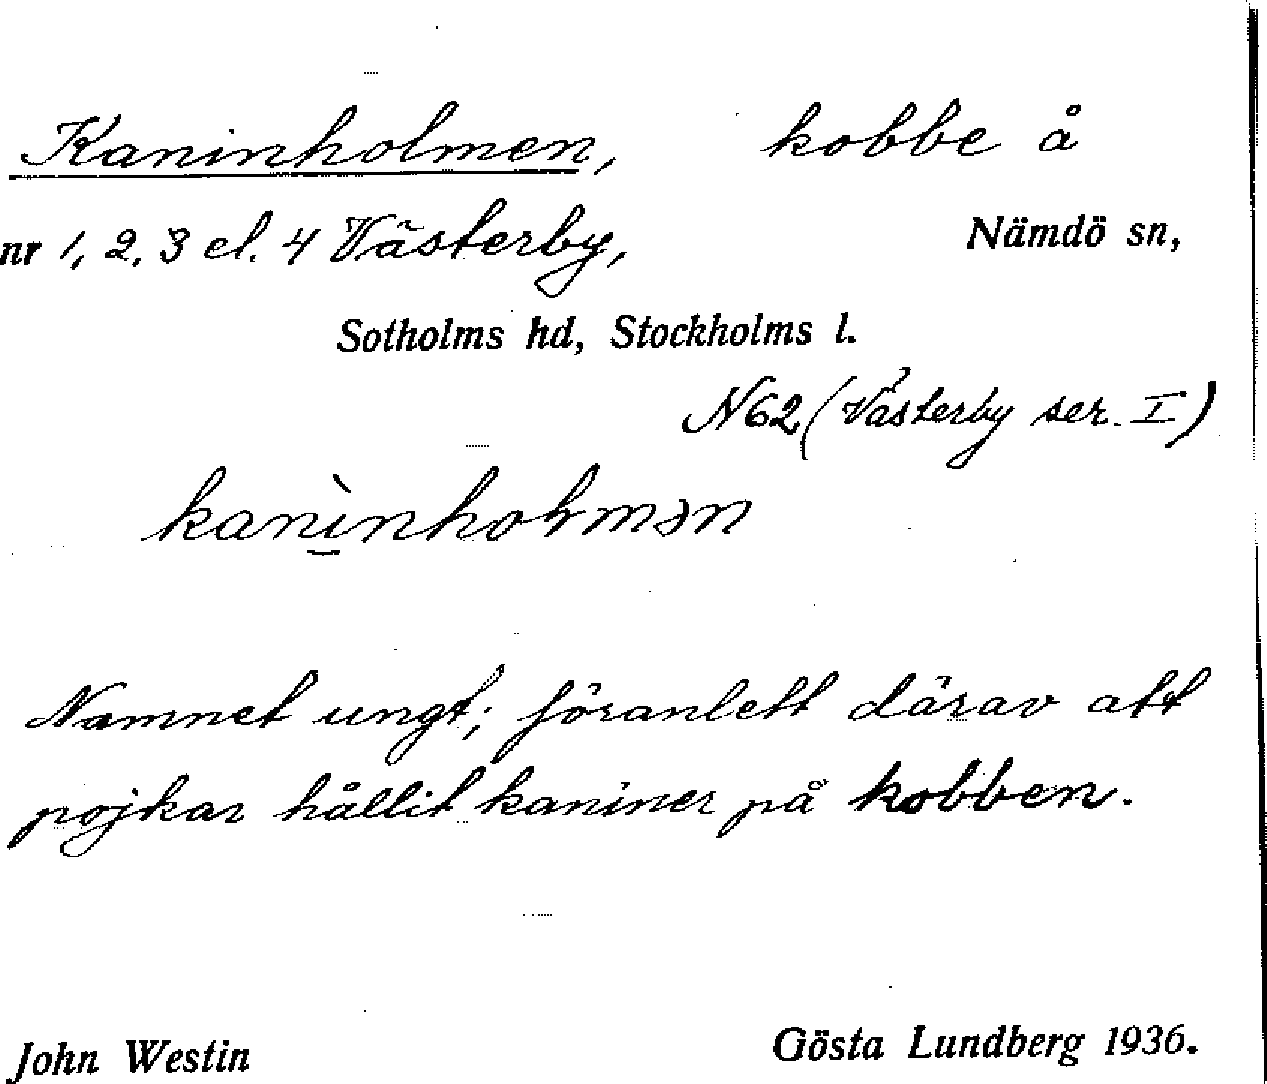 Kaninholmen, kobbe å
nr 1, 2, 3 el. 4 Västerby, Nämdö sn,
Sotholms hd, Stockholms l.
N62 (Västerby ser. I)
kanìnhoɫmən
Namnet ungt; föranlett därav att
pojkar hållit kaniner på kobben.
John Westin Gösta Lundberg 1936.